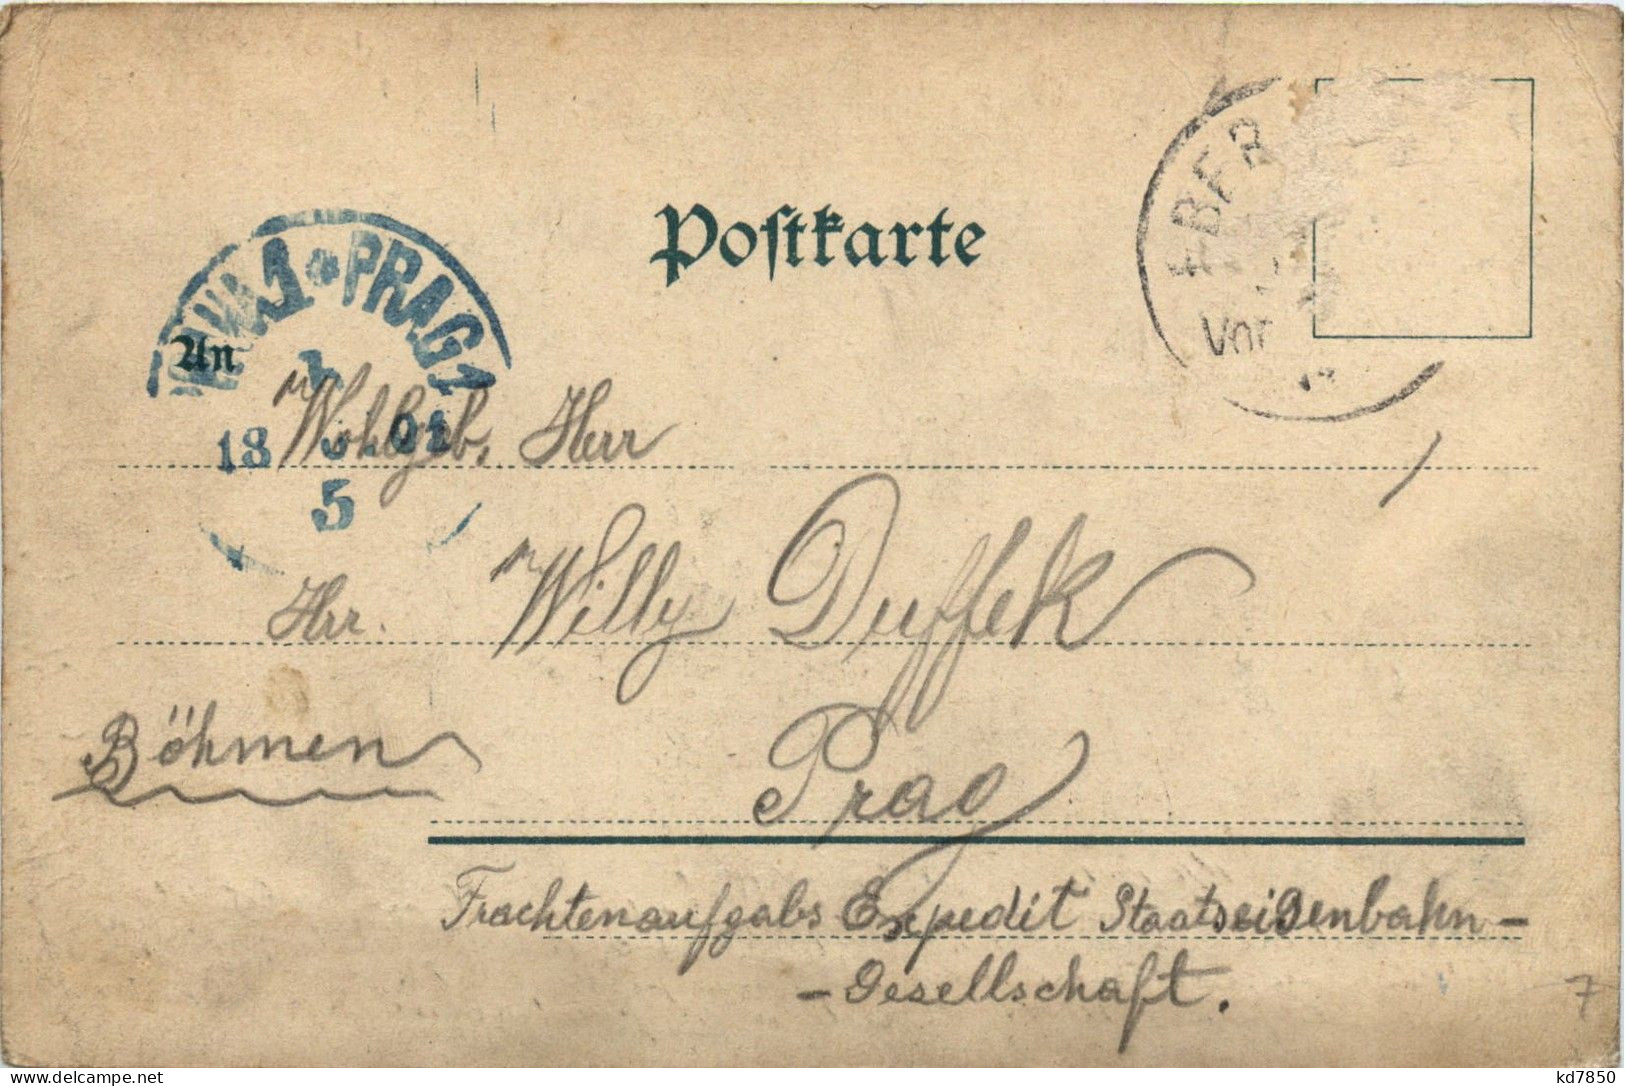 Postkarte
BER
Vor
PRAHA 1 * PRAG 1
18 3 01
5
An
Wohlgeb. Herr
Herr. Willy Duffek
Böhmen
Prag
Frachtenaufgabs Expedit Staatseisenbahn-
-Gesellschaft.
7
kd7850